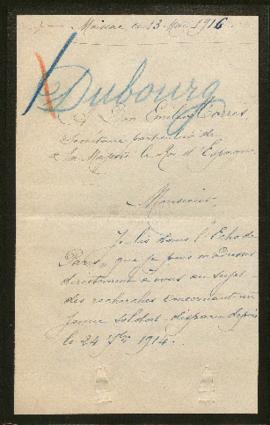 Moissac le 13 Mai 1916
Dubourg
A Don Emilio Torres,
Secrétaire particulier de
sa Majesté le Roi d'Espagne
Monsieur,
Je lis dans l'Echo de
Paris, que je puis m'adresser
directement à vous au sujet
des recherches concernant un
jeune soldat disparu depuis
le 24 1914.